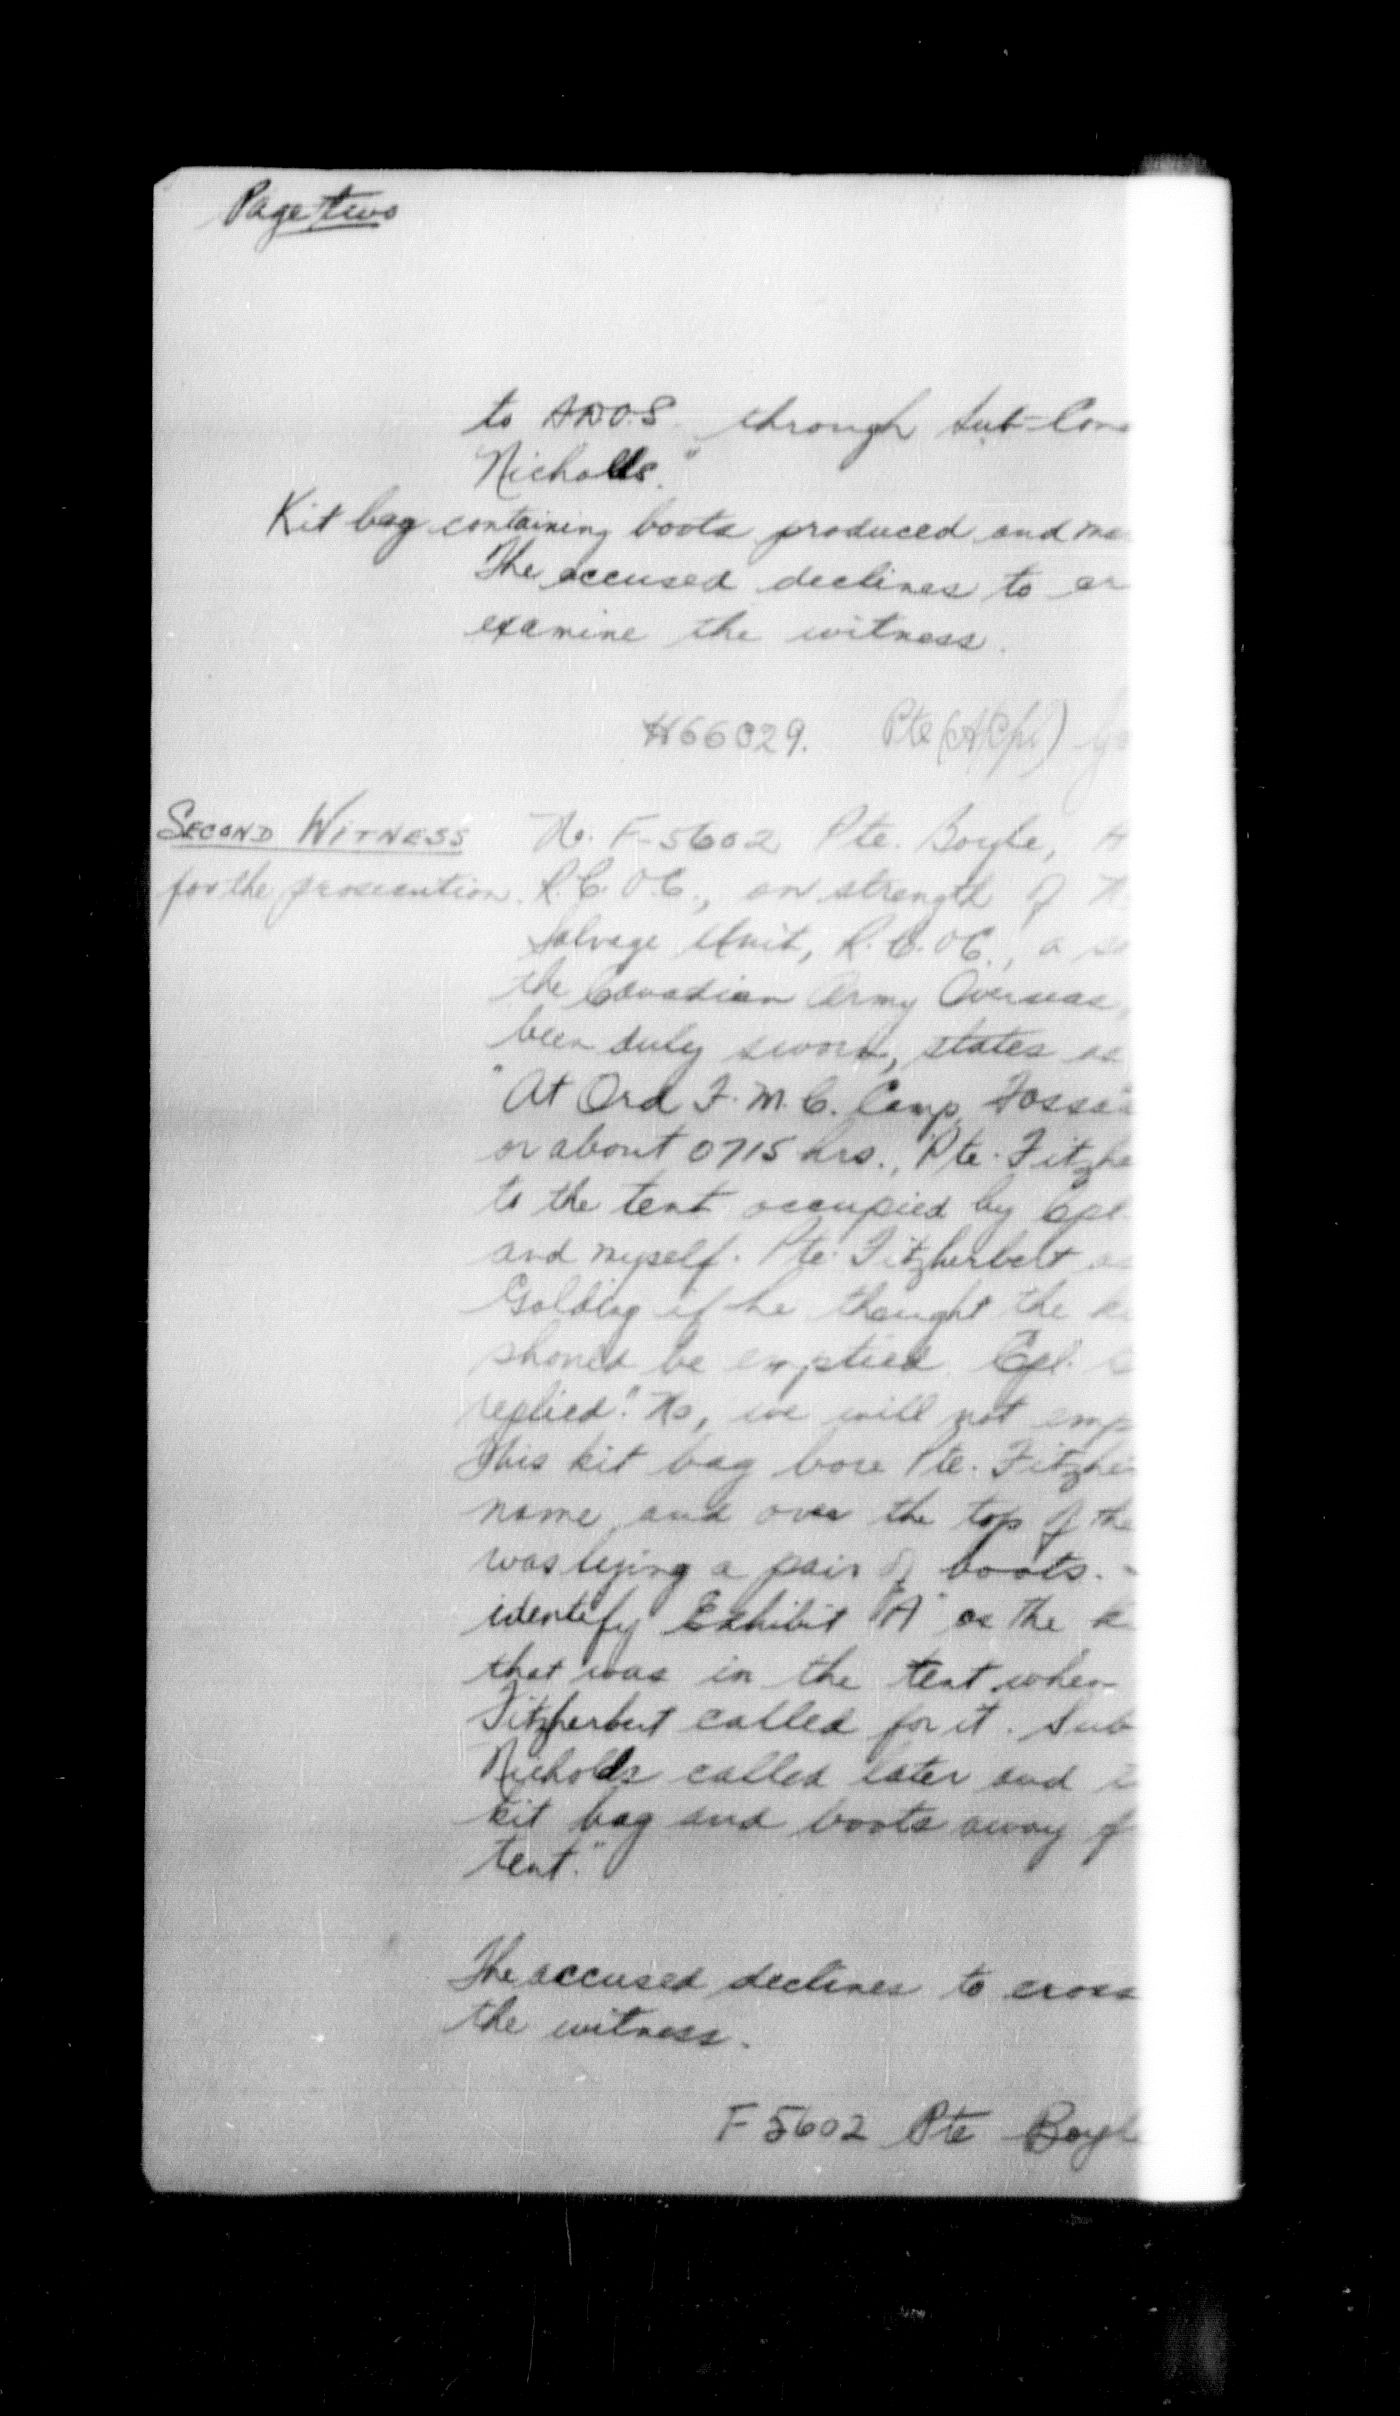 Page two
to ADOS. through Sub-Con
Nicholls."
Kit bag containing boots produced and ma
The accused declines to cr
examine the witness.
H66029. Pte (A/Cpl) Go
SECOND WITNESS No. F-5602 Pte. Boyle, A
for the prosecution. R.C.O.C., on strength of N
Salvage Unit, R.C.O.C., a so
the Canadian Army Overseas,
been duly sworn, states as
"At Ord F.M.C. Camp, Fossa
or about 0715 hrs., Pte. Fitzhe
to the tent occupied by Cpl.
and myself. Pte. Fitzherbert as
Golding if he thought the ki
should be emptied. Cpl. G
replied "No, we will not emp
This kit bag bore Pte. Fitzher
name and over the top of the
was lying a pair of boots.
identify Exhibit "A" as the k
that was in the tent when
Fitzherbert called for it. Sub
Nicholls called later and t
kit bag and boots away f
tent."
The accused declines to cross
the witness.
F5602 Pte Boyle